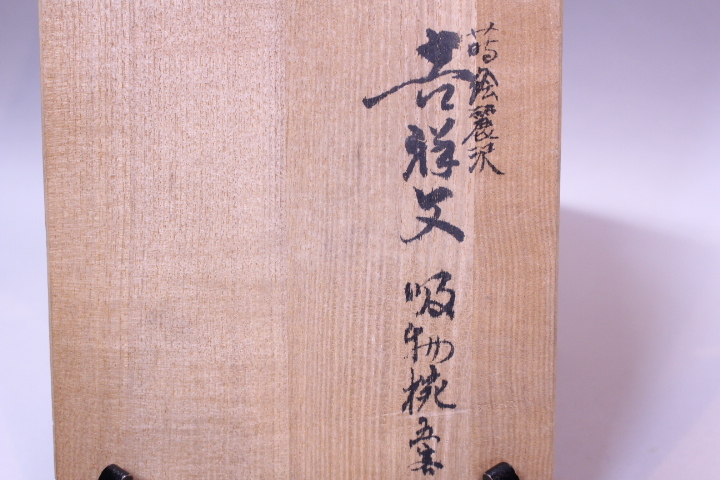 蒔絵麗沢
吉祥文 吸物椀 五客